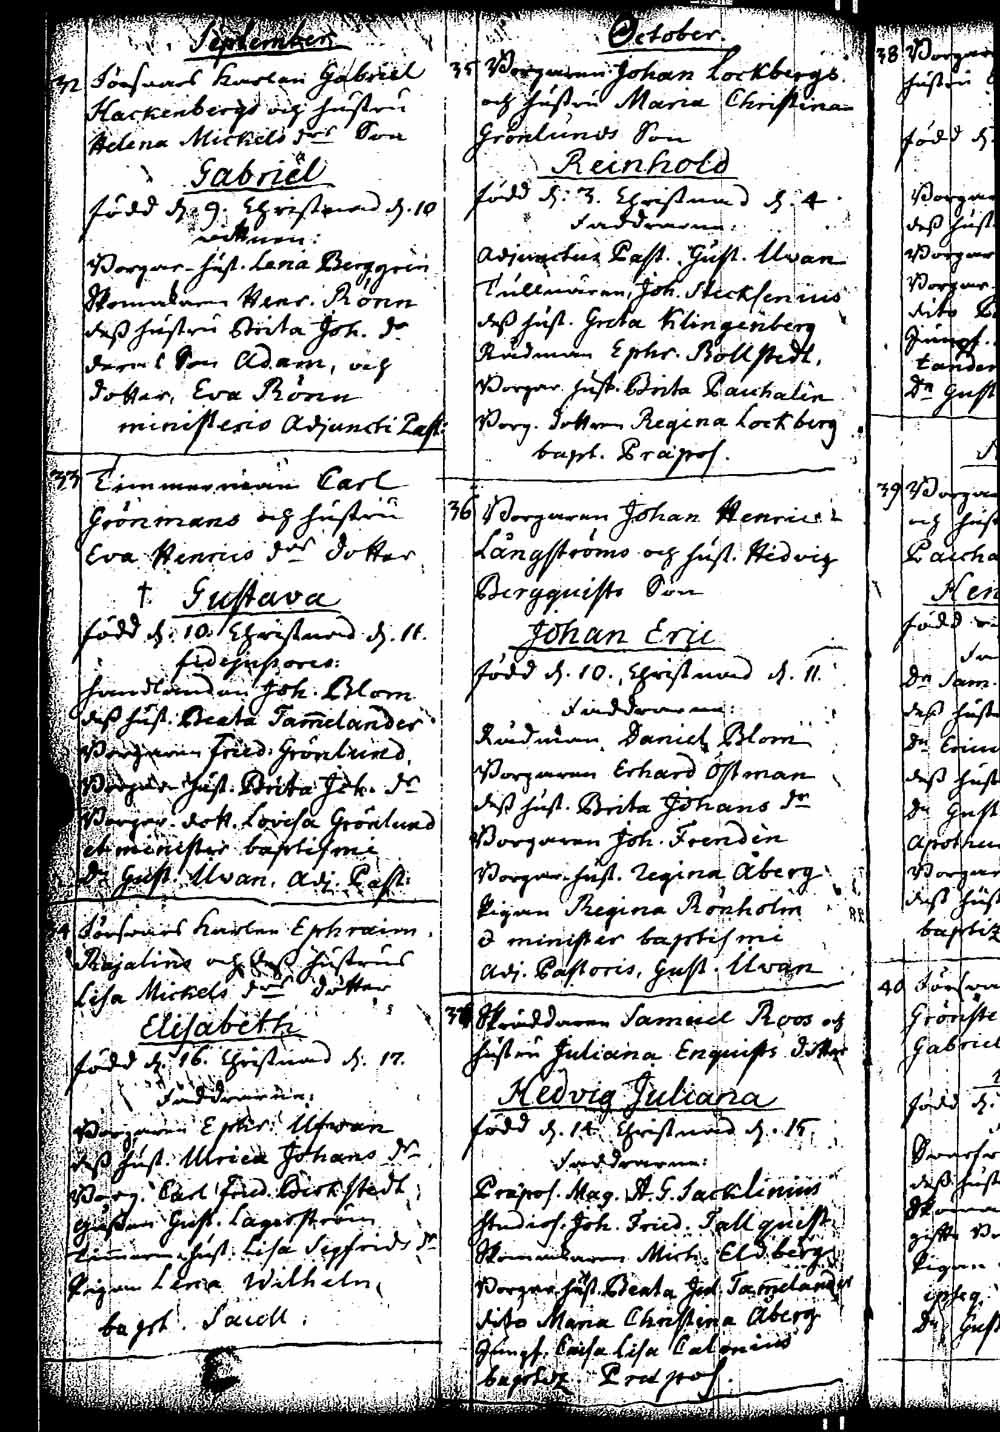 September
32 Försvars Karlen Gabriel
Hackenbergs och hustru
Helena Mickels drs Son
Gabriel
född d. 9. Christnad d. 10
vittnen:
Borgar. hust. Lena Berggren
Skomakaren Henr. Rönn
deß hustru Brita Joh. dr
deras Son Adam, och
dotter, Eva Rönn
ministeris Adjuncti Past:
33 Timmerman Carl
Grönmans och hustru
Eva Henrics drs dotter
† Gustava
född d. 10. Christnad d. 11.
fidejussores:
handlanden Joh. Blom
deß hust. Beata Tam̄elander
Borgaren Fried. Grönlund,
Borgar hust. Brita Joh. dr
Borgar. dott. Lovisa Grönlund
et minister baptismi
Dn Gust. Uwan. Adj. Past:
34 Försvars Karlen Ephraim
Rajalins och deß hustrus
Lisa Mickels drs dotter
Elisabeth
född d. 16. Christnad d. 17.
Faddrarne:
Borgaren Ephr. Ufwan
deß hust. Ulrica Johans dr
Borg. Carl Fried. Birkstedt
Gust. Lagerström
hust. Lisa Sigfrids dr
Pigan Lena Wilhelm
bapt.
October.
35 Borgaren Johan Lockbergs
och hustru Maria Christina
Grönlunds Son
Reinhold
född d. 3. Christnad d. 4.
Faddrarne:
Adjunctus Past. Gust. Uwan
Joh. Stecksenius
deß hust. Greta Klingenberg
Rådman Ephr. Bollstedt,
Borgar. hust. Brita Paschalin
Borg. dottren Regina Lockberg
bapt. Præpos.
36 Borgaren Johan Henric
Långströms och hust. Hedvig
Bergquists Son
Johan Eric
född d. 10. Christnad d. 11.
Faddrarne:
Rådman Daniel Blom
Borgaren Erhard Östman
deß hust. Brita Johans dr
Borgaren Joh. Frendin
Borgar. hust. Regina Åberg
Pigan Regina Rönholm
& minister baptismi
Adj. Pastoris, Gust. Uwan
37 Skräddaren Samuel Roos och
hustru Juliana Enquists dotter
Hedvig Juliana
född d. 14. Christnad d. 15.
Faddrarne:
Præpos. Mag. A. G. Jacklinius
Studios. Joh. Fried. Tallquist
Skomakaren Mich. Eldberg
Borgar hust. Beata Jul. Tam̄elander
dito Maria Christina Åberg
Jungf. Caisa Lisa Calonius
Præpos.
38 Borgar
hustru
född d.
Borgar
deß hust
Borgar
Borgar
dito
Jungf.
tander
Dn Gust
39 Borgar
och hust
Pascha
Hen
född
Fa
Dn Sam.
deß hust
Dn
deß hust
Dn Gust
Apothe
Borgar
deß hust
baptiz
40 Försva
Grönste
Gabriel
född d.
deß hust
Skoma
Pigan
Dn Gust